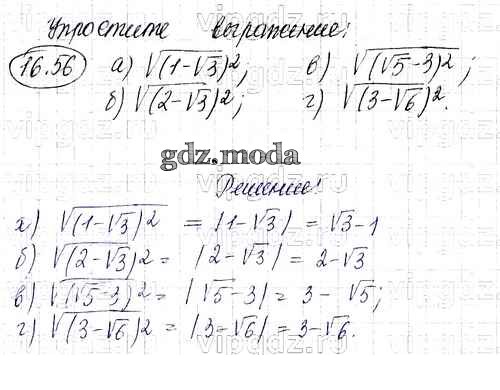 Упростите выражение:
16.56 а) √(1-√3)², в) √(√5-3)²;
б) √(2-√3)²; г) √(3-√6)².
gdz.moda
Решение!
а) √(1-√3)² = |1-√3| = √3-1
б) √(2-√3)² = |2-√3| = 2-√3
в) √(√5-3)² = |√5-3| = 3-√5;
г) √(3-√6)² = |3-√6| = 3-√6.